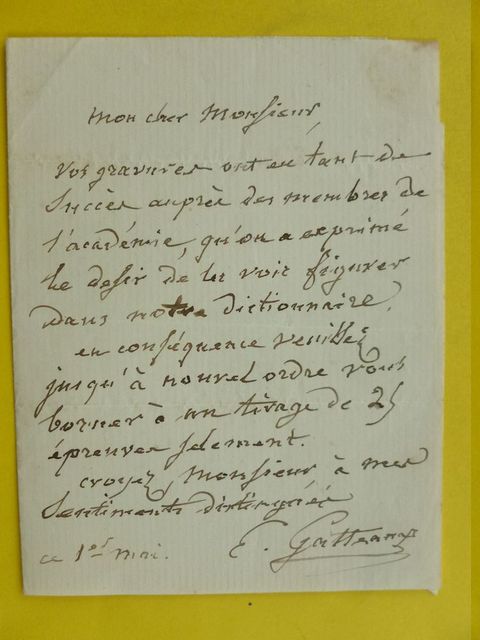 Mon cher Monsieur,
Vos gravures ont eu tant de
succès auprès des membres de
l'académie, qu'on a exprimé
le desir de les voir figurer
dans notre dictionnaire.
en conséquence veuillez
jusqu'à nouvel ordre vous
borner à un tirage de 25
épreuves selement.
croyez, Monsieur, à mes
sentiments distingués
ce 1er mai. E. Gatteaux